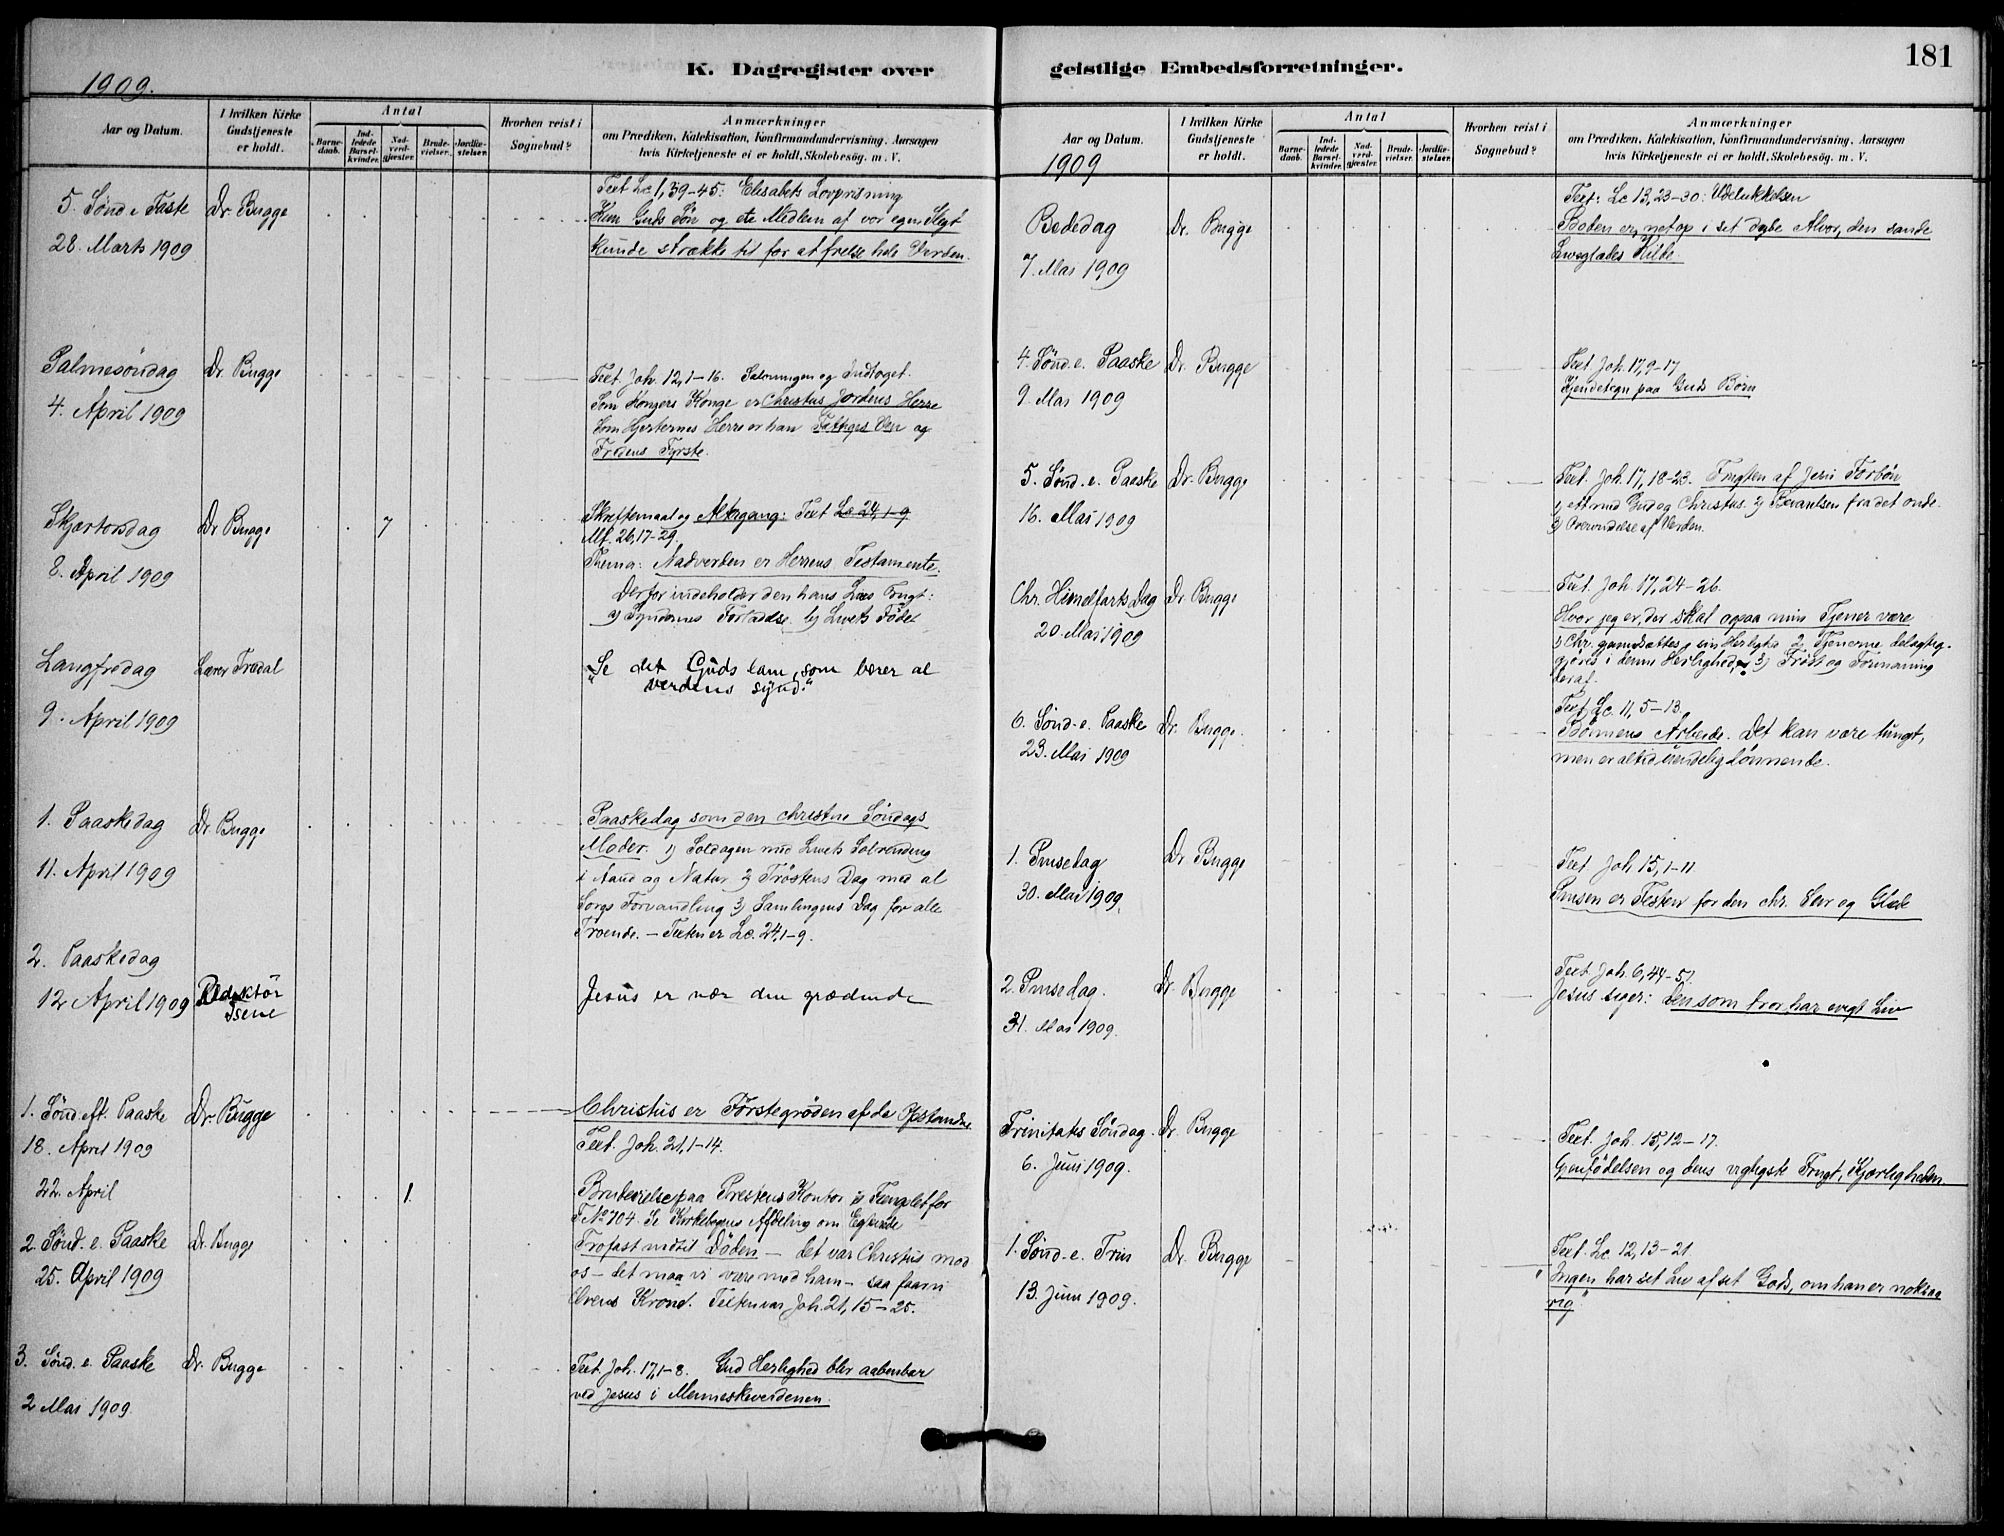 1909.
K. Dagregister over
Aar og Datum.
I hvilken Kirke Gudstjeneste er holdt.
Antal
Barne-daab.
Ind-ledede Barsel-kvinder.
Nad-verd-gjester.
Brude-vielser.
Jordfæ-stelser.
Hvorhen reist i Sognebud?
Anmærkninger
om Prædiken, Katekisation, Konfirmandundervisning, Aarsagen
hvis Kirketjeneste ei er holdt, Skolebesög. m. V.
5. Sønd i Faste
28. Marts 1909
Dr. Bugge
Text Lc. 1, 39-45: Elisabets Lovprisning
Kun Guds Søn og et Medlem af vor egen Slegt
kunde strække til for at frelse hele Verden.
Palmesöndag
4. April 1909
Dr. Bugge
Text. Joh. 12, 1-16. Salvningen og Indtoget.
Som Kongers Konge er Christus Jordens Herre
Som Hjerternes Herre er han Fattiges Ven og
Fredens Fyrste.
Skjærtorsdag
8. April 1909
Dr Bugge
7
Skriftemaal og Altergang: Text Lc 24, 1-9
Mt. 26, 17-29.
Thema: Nadverden er Herrens Testamente.
Derfor indeholder den hans Livs Frugt:
a) Syndernes Forladelse b) Livets Föde.
Langfredag
9. April 1909
Lærer Trædal
"Se det Guds lam, som bærer al
verdens synd."
1. Paaskedag
11. April 1909
Dr. Bugge
Paaskedag som den christne Söndags
Moder. 1) Soldagen med Livets Solrending
i Aand og Natur. 2) Tröstens Dag med al
Sorgs Forvandling 3) Samlingens Dag for alle
Troende. - Texten er Lc. 24, 1-9.
2. Paaskedag
12 April 1909
Redaktör
Isene
Jesus er nær den grædende
1. Sönd. eft. Paaske
18. April 1909
Dr. Bugge
Christus er Förstegröden af de Opstandne
Text. Joh. 21, 1-14.
22. April
1.
Brudevielse paa Prestens Kontor
No 704. Se Kirkebogens Afdeling om
2. Sönd. e. Paaske
25. April 1909
Dr. Bugge
Trofast indtil Döden - det var Christus mod
os - det maa vi være mod ham - saa faar vi
Livens Krone. Texten var Joh. 21, 15-25.
3. Sönd. e. Paaske
2 Mai 1909
Dr. Bugge
Text. Joh. 17, 1-8. Gud Herlighed blir aabenbar
ved Jesus i Menneskeverdenen.
geistlige Embedsforretninger.
181
Aar og Datum.
1909
I hvilken Kirke Gudstjeneste er holdt.
Antal
Barne-daab.
Ind-ledede Barsel-kvinder.
Nad-verd-gjester.
Brude-vielser.
Jordfæ-stelser.
Hvorhen reist i Sognebud?
Anmærkninger
om Prædiken, Katekisation, Konfirmandundervisning, Aarsagen
hvis Kirketjeneste ei er holdt, Skolebesög. m. V.
Bededag
7. Mai 1909
Dr. Bugge
Text: Lc 13, 23-30: Udelukkelsen
Boden er, netop i set dybe Alvor, den sande
Livsglædes Kilde.
4. Sönd. e. Paaske
9. Mai 1909
Dr. Bugge
Text Joh. 17, 9-17
Kjendetegn paa Guds Børn
5. Sönd. e. Paaske
16. Mai 1909
Dr. Bugge
Text. Joh. 17, 18-23. Frugten af Jesu Forbön
1) ett med Gud og Christus. 2) Bevarelsen fra det onde.
3) Overvindelse af Verden.
Chr. Himelfarts Dag
20. Mai 1909
Dr. Bugge
Text. Joh. 17, 24-26.
Hvor jeg er, der skal ogsaa min Tjener være
1) Chr. gjenindsættes i sin Herlighed 2) Tjenerne delagtig-
gjöres i denne Herlighed, 3) Tröst og Formaning
deraf.
6. Sönd. e. Paaske
23. Mai 1909
Dr. Bugge.
Text Lc. 11, 5-13.
Bönnens Arbeide. Det kan være tungt,
men er altid uendelig lönnende.
1. Pinsedag
30. Mai 1909.
Dr Bugge
Text Joh. 15, 1-11.
Pinsen er Festen for den chr. Liv og Glæde
2. Pinsedag.
31. Mai 1909.
Dr. Bugge
Text. Joh. 6, 44-51.
Jesus siger: den som tror, har evigt Liv
Trinitatis Söndag.
6. Juni 1909.
Dr. Bugge
Text. Joh. 15, 12-17.
Gjenfödelsen og dens vigtigste Frugt, Kjærligheden
1. Sönd. e. Trin
13. Juni 1909.
Dr. Bugge
Text. Lc. 12, 13-21.
"Ingen har set Liv af set Gods, om han er nok saa
rig."